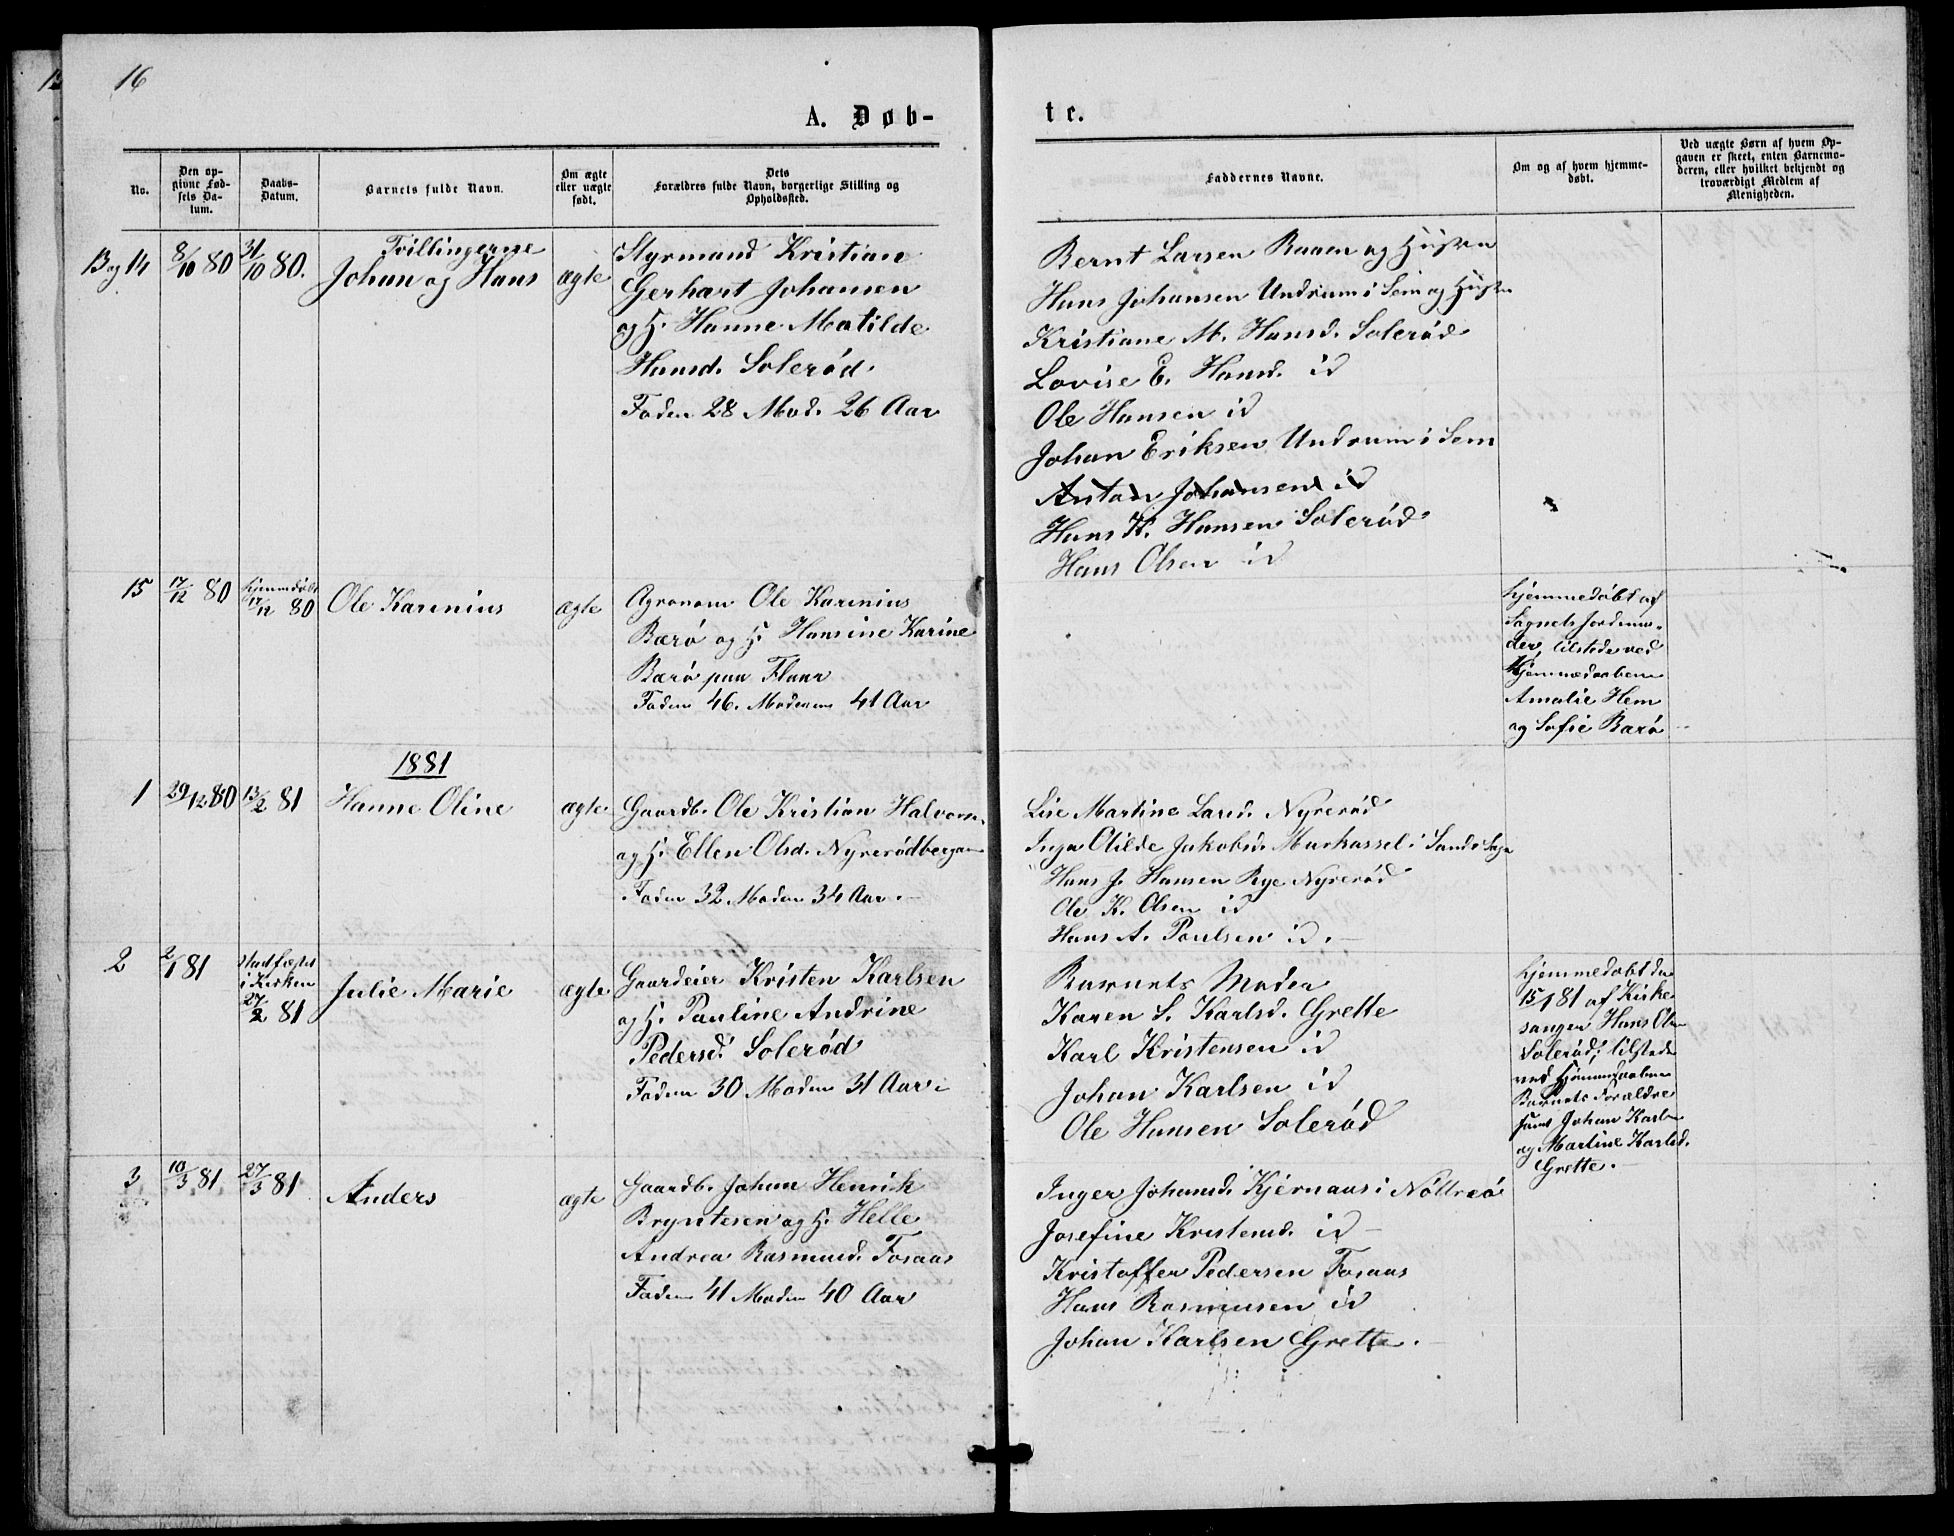 16
A. Døb-
te.
No.
Den op-
givne Fød-
sels Da-
tum.
Daabs-
Datum.
Barnets fulde Navn.
Om ægte
eller uægte
født.
Dets
Forældres fulde Navn, borgerlige Stilling og
Opholdssted.
Faddernes Navne.
Om og af hvem hjemme-
døbt.
Ved uægte Børn af hvem Op-
gaven er skeet, enten Barnemo-
deren, eller hvilket bekjendt og
troværdigt Medlem af
Menigheden.
13 og 14
8/10 80
31/10 80.
Tvillingerne
Johan og Hans
ægte
Styrmand Kristian
Gerhart Johansen
og H. Hanne Matilde
Hansd. Solerød.
Faden 28 Mod. 26 Aar
Bernt Larsen Raaen og Hustru
Hans Johansen Undrum i Sem og Hustru
Kristiane M. Hansd. Solerød
Lovise E. Hansd. id
Ole Hansen id
Johan Eriksen Undrum i Sem
Anton Johansen id
Hans K. Hansen Solerød
Hans Olsen id
15
17/12 80
hjemmedøbt
17/12 80
Ole Karinius
ægte
Agronom Ole Karinius
Barø og H. Hansine Karine
Barø paa Flaar
Faden 46. Moderen 41 Aar
hjemmedøbt af
Sognets Jordemo-
der, tilstede ved
Hjemmedaaben
Amalie Hem
og Sofie Barø
1881
1
29/12 80
13/2 81
Hanne Oline
ægte
Gaardb. Ole Kristian Halvors.
og H. Ellen Olsd. Nyrerødbergan
Faden 32 Moden 34 Aar.
Lise Martine Larsd. Nyrerød
Inga Otilde Jakobsd. Markussel i Sande Sogn
Hans J. Hansen Rye Nyrerød
Ole K. Olsen id
Hans A. Paulsen id.
2
2/1 81
Stadfæstet
i Kirken
27/2 81
Julie Marie
ægte
Gaardeier Kristen Karlsen
og H. Pauline Andrine
Pedersd. Solerød
Faden 30 Moden 31 Aar.
Barnets Moder
Karen S. Karlsd. Grette
Karl Kristensen id
Johan Karlsen id
Ole Hansen Solerød
hjemmedøbt den
15/1 81 af Kirke-
sanger Hans Olsen
Solerød; tilstede
ved Hjemmedaaben
Barnets Forældre
samt Johan Karlsen
og Martine Karlsd.
Grette.
3
10/3 81
27/3 81
Anders
ægte
Gaardb. Johan Henrik
Bryntesen og H. Helle
Andrea Rasmusd. Fosaas
Faden 41 Moden 40 Aar
Inger Johansd. Kjernaas i Nøttrø
Josefine Kristensd. id
Kristoffer Pedersen Fosaas
Hans Rasmusen id
Johan Karlsen Grette.